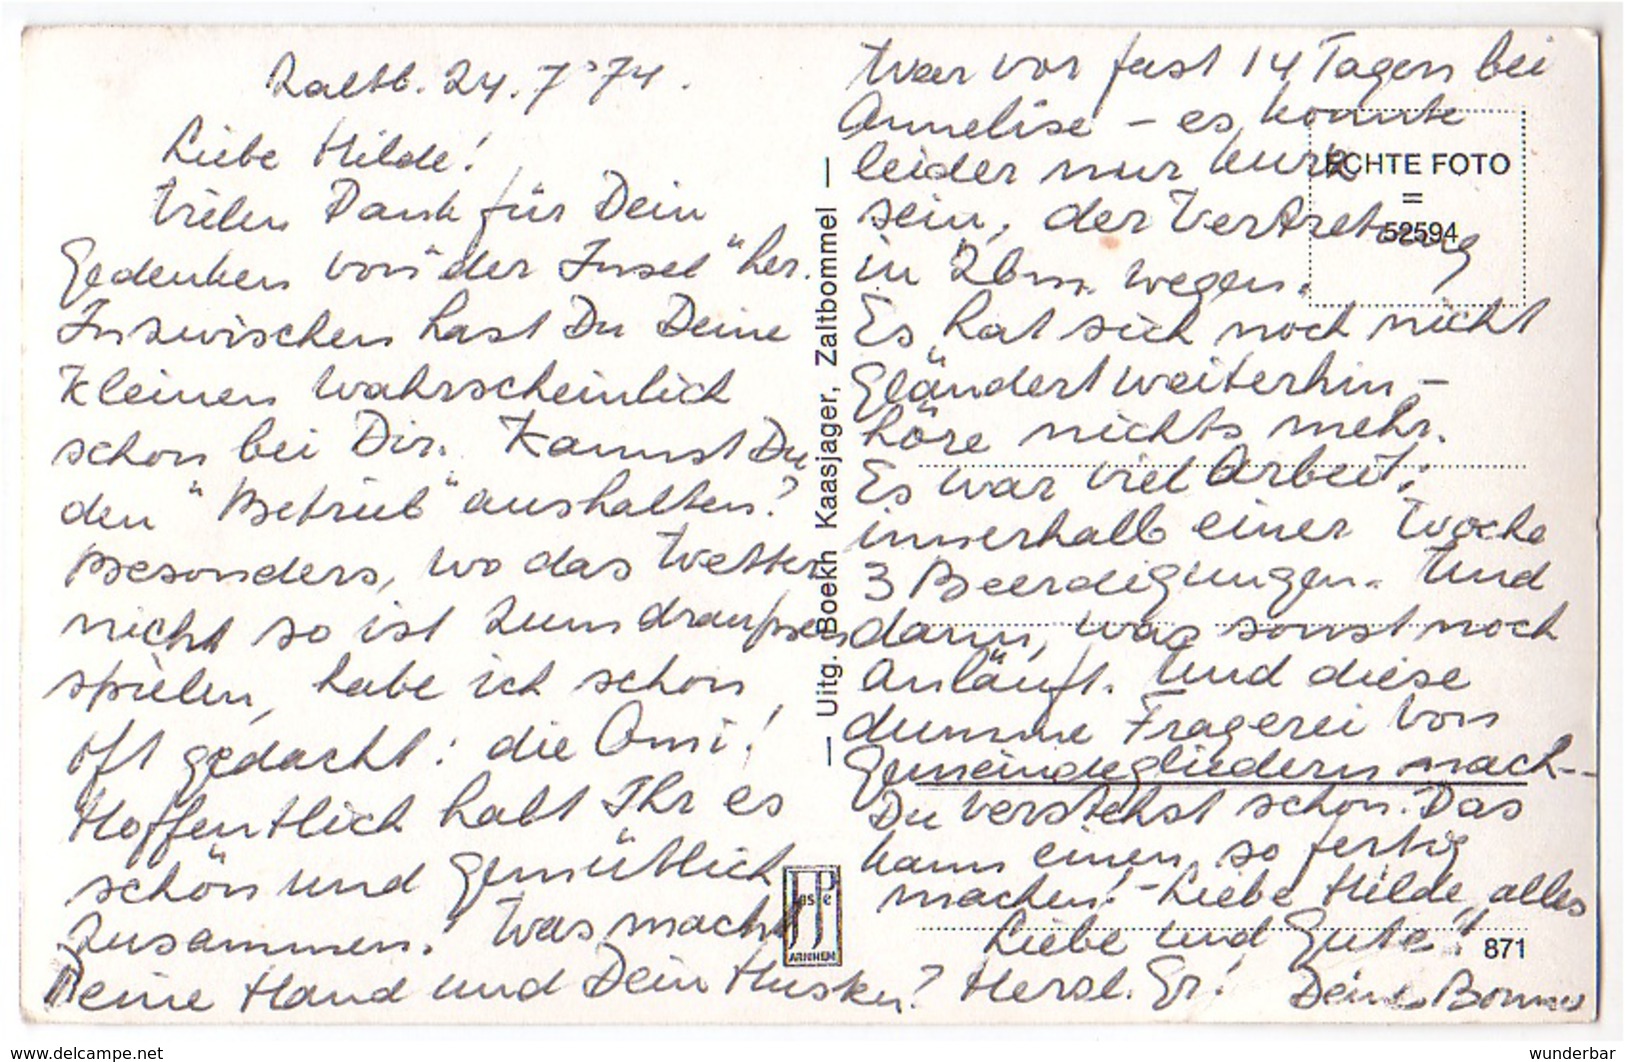 Zaltb. 24.7.74.
Liebe Hilde!
Vielen Dank für Dein
Gedenken von "der Insel" her.
Inzwischen hast Du Deine
Kleinen wahrscheinlich
schon bei Dir. Kannst Du
den "Betrieb" aushalten?
Besonders, wo das Wetter
nicht so ist zum draußen
spielen, habe ich schon
oft gedacht: die Omi!
Hoffentlich habt Ihr es
schön und gemütlich
zusammen. Was macht
Deine Hand und Dein Husken?
War vor fast 14 Tagen bei
Annelise – es konnte
leider nur kurz
sein, der Vertretung
in Zbm. wegen.
Es hat sich noch nicht
geländert weiterhin –
höre nichts mehr.
Es war viel Arbeit:
innerhalb einer Woche
3 Beerdigungen. Und
dann, was sonst noch
anläuft. Und diese
dumme Fragerei von
Gemeindegliedern nach –
Du verstehst schon. Das
kann einen so fertig
machen! – Liebe Hilde, alles
Liebe und Gute!
Herzl. Gr! Deine
— Uitg. Boekh Kaasjager, Zaltbommel —
ECHTE FOTO
=
52594
JosPé
ARNHEM
871
www.delcampe.net
wunderbar